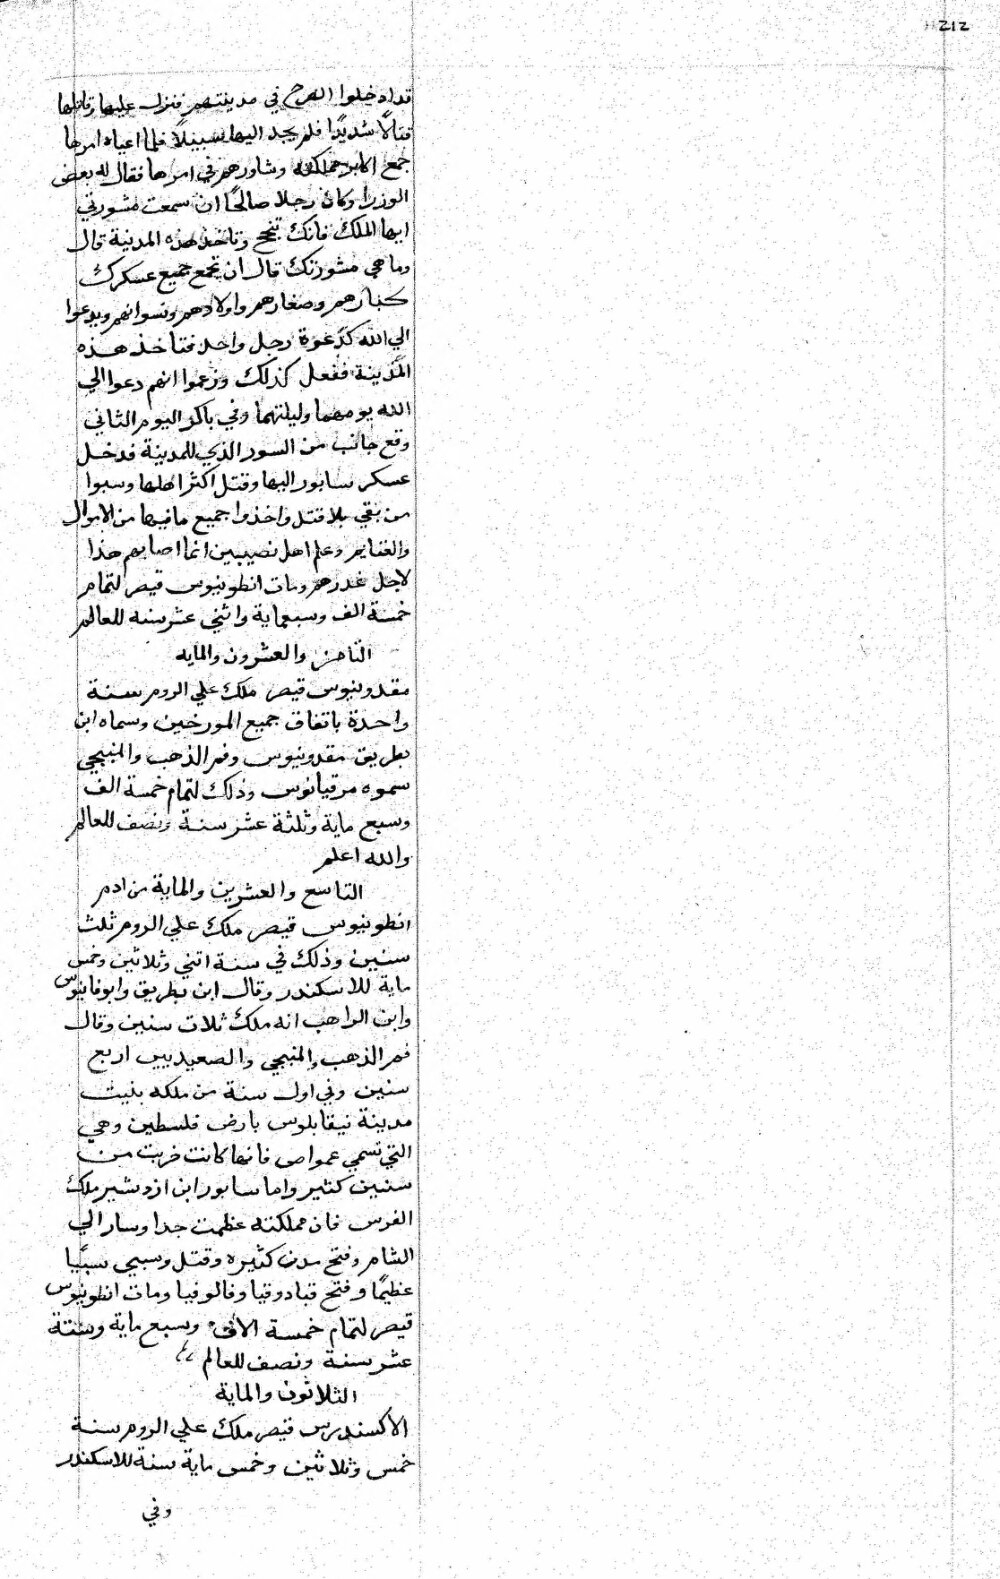 212
قد ادخلوا الفرح في مدينتهم فنزل عليها وقاتلها
قتالًا شديدًا فلم يجد اليها سبيلًا فلما اعياه امرها
جمع اكابر مملكته وشاورهم في امرها فقال له بعض
الوزرا وكان رجلا صالحًا ان سمعت مشورتي
ايها الملك فانك تنجح وتاخذ هذه المدنية قال
وما هي مشورتك قال ان تجمع جميع عسكرك
كبارهم وصغارهم واولادهم ونسوانهم ويدعوا
الي الله كدعوة رجل واحد فتاخذ هذه
المدينة ففعل كذلك وزعموا انهم دعوا الي
الله يومهما وليلتهما وفي باكر اليوم الثاني
وقع جانب من السور الذي للمدينة فدخل
عسكر سابور اليها وقتل اكثر اهلها وسبوا
من بقي بلا قتل واخذوا جميع ما فيها من الاموال
والغنايم وعلم اهل نصيبين انما اصابهم هذا
لاجل غدرهم ومات انطونيوس قيصر لتمام
خمسة الف وسبعماية واثني عشر سنه للعالم
الثامن والعشرون والمايه
مقدونيوس قيصر ملك علي الروم سنة
واحدة باتفاق جميع المورخين وسماه ابن
بطريق مقدونيوس وفم الذهب والمنبجي
سموه مرقيانوس وذلك لتمام خمسة الف
وسبع ماية وثلثة عشر سنة ونصف للعالم
والله اعلم
التاسع والعشرين والماية من ادم
انطونيوس قيصر ملك علي الروم ثلث
سنين وذلك في سنة اثني وثلاثين وخمس
ماية للاسكندر وقال ابن بطريق وابوفانيوس
وابن الراهب انه ملك ثلاث سنين وقال
فم الذهب والمنبجي والصعيديين اربع
سنين وفي اول سنة من ملكه بنيت
مدينة نيقابلوس بارض فلسطين وهي
التي تسمي عمواص فانها كانت خربت من
سنين كثير واما سابور ابن ازدشير ملك
الفرس فان مملكته عظمت جدا وسار الي
الشام وفتح مدن كثيره وقتل وسبي سبيًا
عظيمًا وفتح قبادوقيا وقالوقيا ومات انطونيوس
قيصر لتمام خمسة الاف وسبع ماية وستة
عشر سنة ونصف للعالم
الثلاثون والماية
الاكسندرس قيصر ملك علي الروم سنة
خمس وثلاثين وخمس ماية سنة للاسكندر
وفي